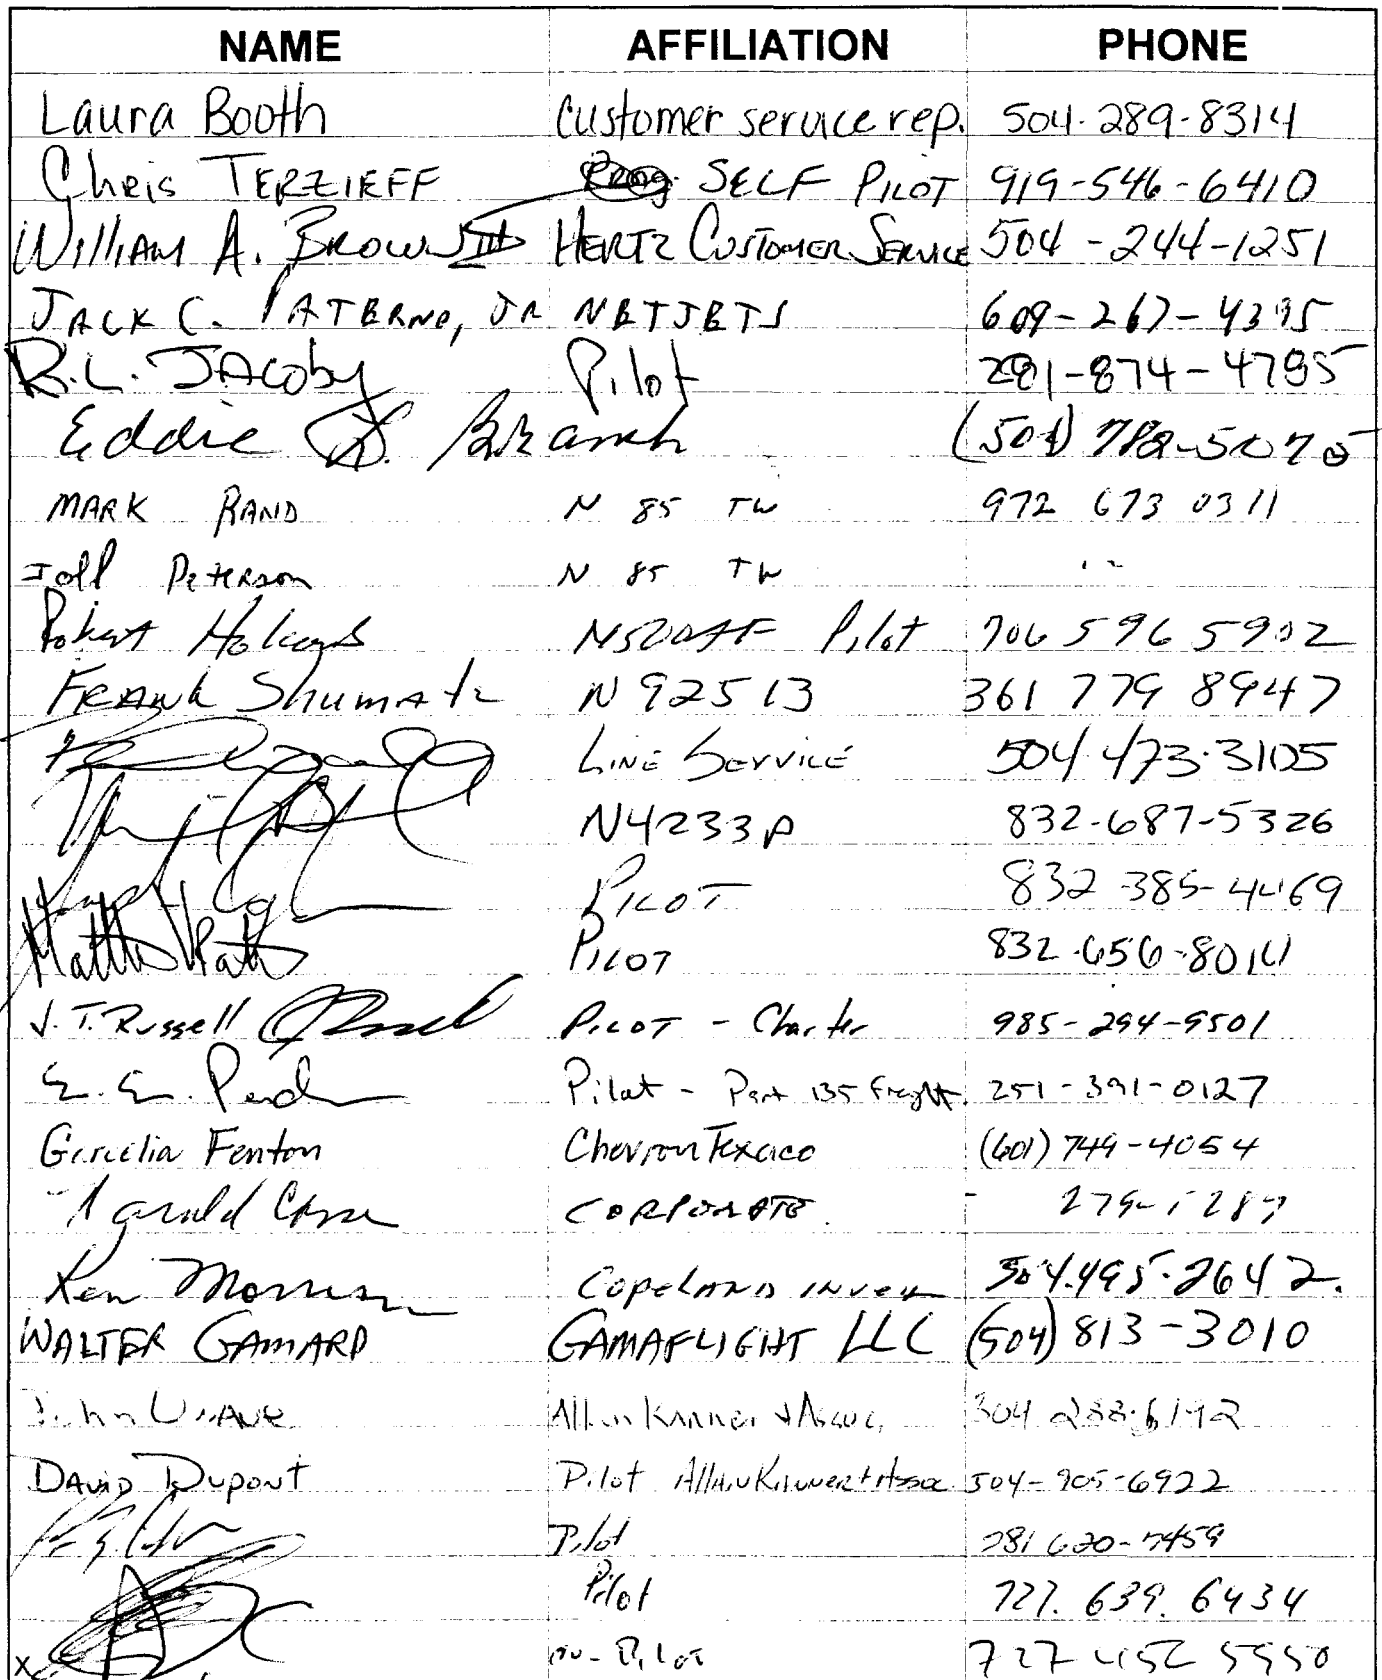 NAME AFFILIATION PHONE
Laura Booth Customer service rep. 504-289-8314
Chris TERZIEFF SELF PILOT 919-546-6410
William A. Brown III HERTZ CUSTOMER SERVICE 504-244-1251
JACK C. PATERNO, JR NETJETS 609-267-4395
R.L. JACoby Pilot 281-874-4795
Eddie Branch
MARK RAND N 85 TW 972 673 0311
Peterson N 85 TW
Robert Holcomb N520AF Pilot 706 596 5902
FRANK Shumate N 92513 361 779 8947
LINE SERVICE 504 473-3105
N4233P 832-687-5326
PILOT 832-385-4469
PILOT 832-656-8014
J.T. Russell PILOT - Charter 985-294-9501
Pilot - Part 135 Freight 251-391-0127
Fenton ChevronTexaco (601) 749-4054
CORPORATE
Ken Morrison Copeland 504.495-2642
WALTER GAMARD GAMAFLIGHT LLC (504) 813-3010
John
DAVID DUPONT Pilot Allan Kanner + Assoc 504-905-6922
Pilot 281 620-7459
Pilot 727. 639. 6434
x Pilot 727 452 5950